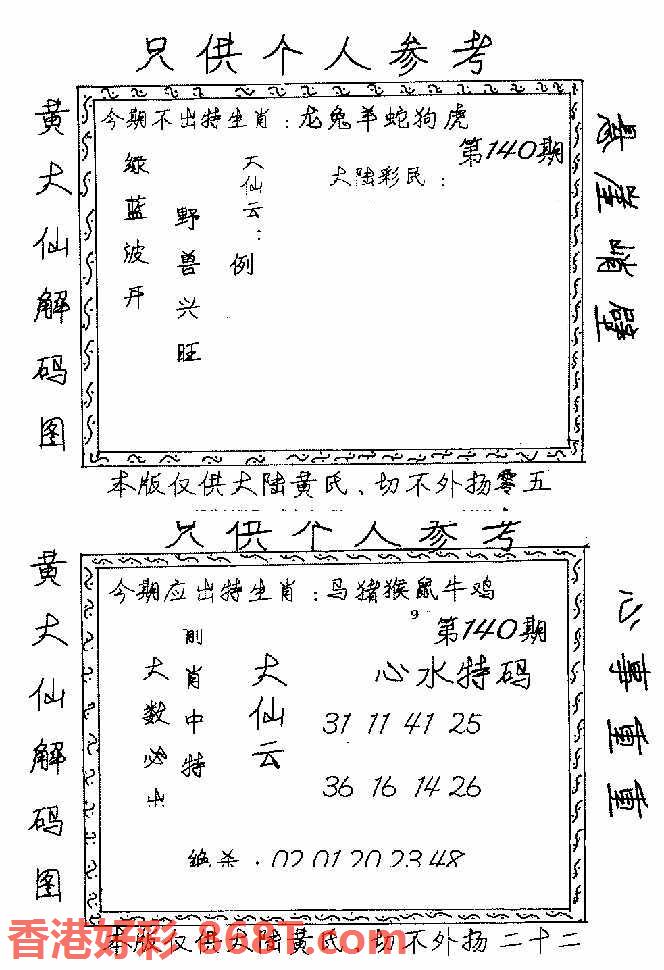 只供个人参考
黄大仙解码图
今期不出特生肖：龙兔羊蛇狗虎
第140期
大陆彩民：
天仙云：
例
野兽兴旺
绿蓝波开
悬崖峭壁
本版仅供大陆黄氏、切不外扬零五
只供个人参考
黄大仙解码图
今期应出特生肖：马猪猴鼠牛鸡
9
第140期
心水特码
31 11 41 25
36 16 14 26
大仙云
前肖中特
大数必出
绝杀：02 01 20 23 48
心事重重
本版仅供大陆黄氏、切不外扬二十二
香港好彩·868T.com